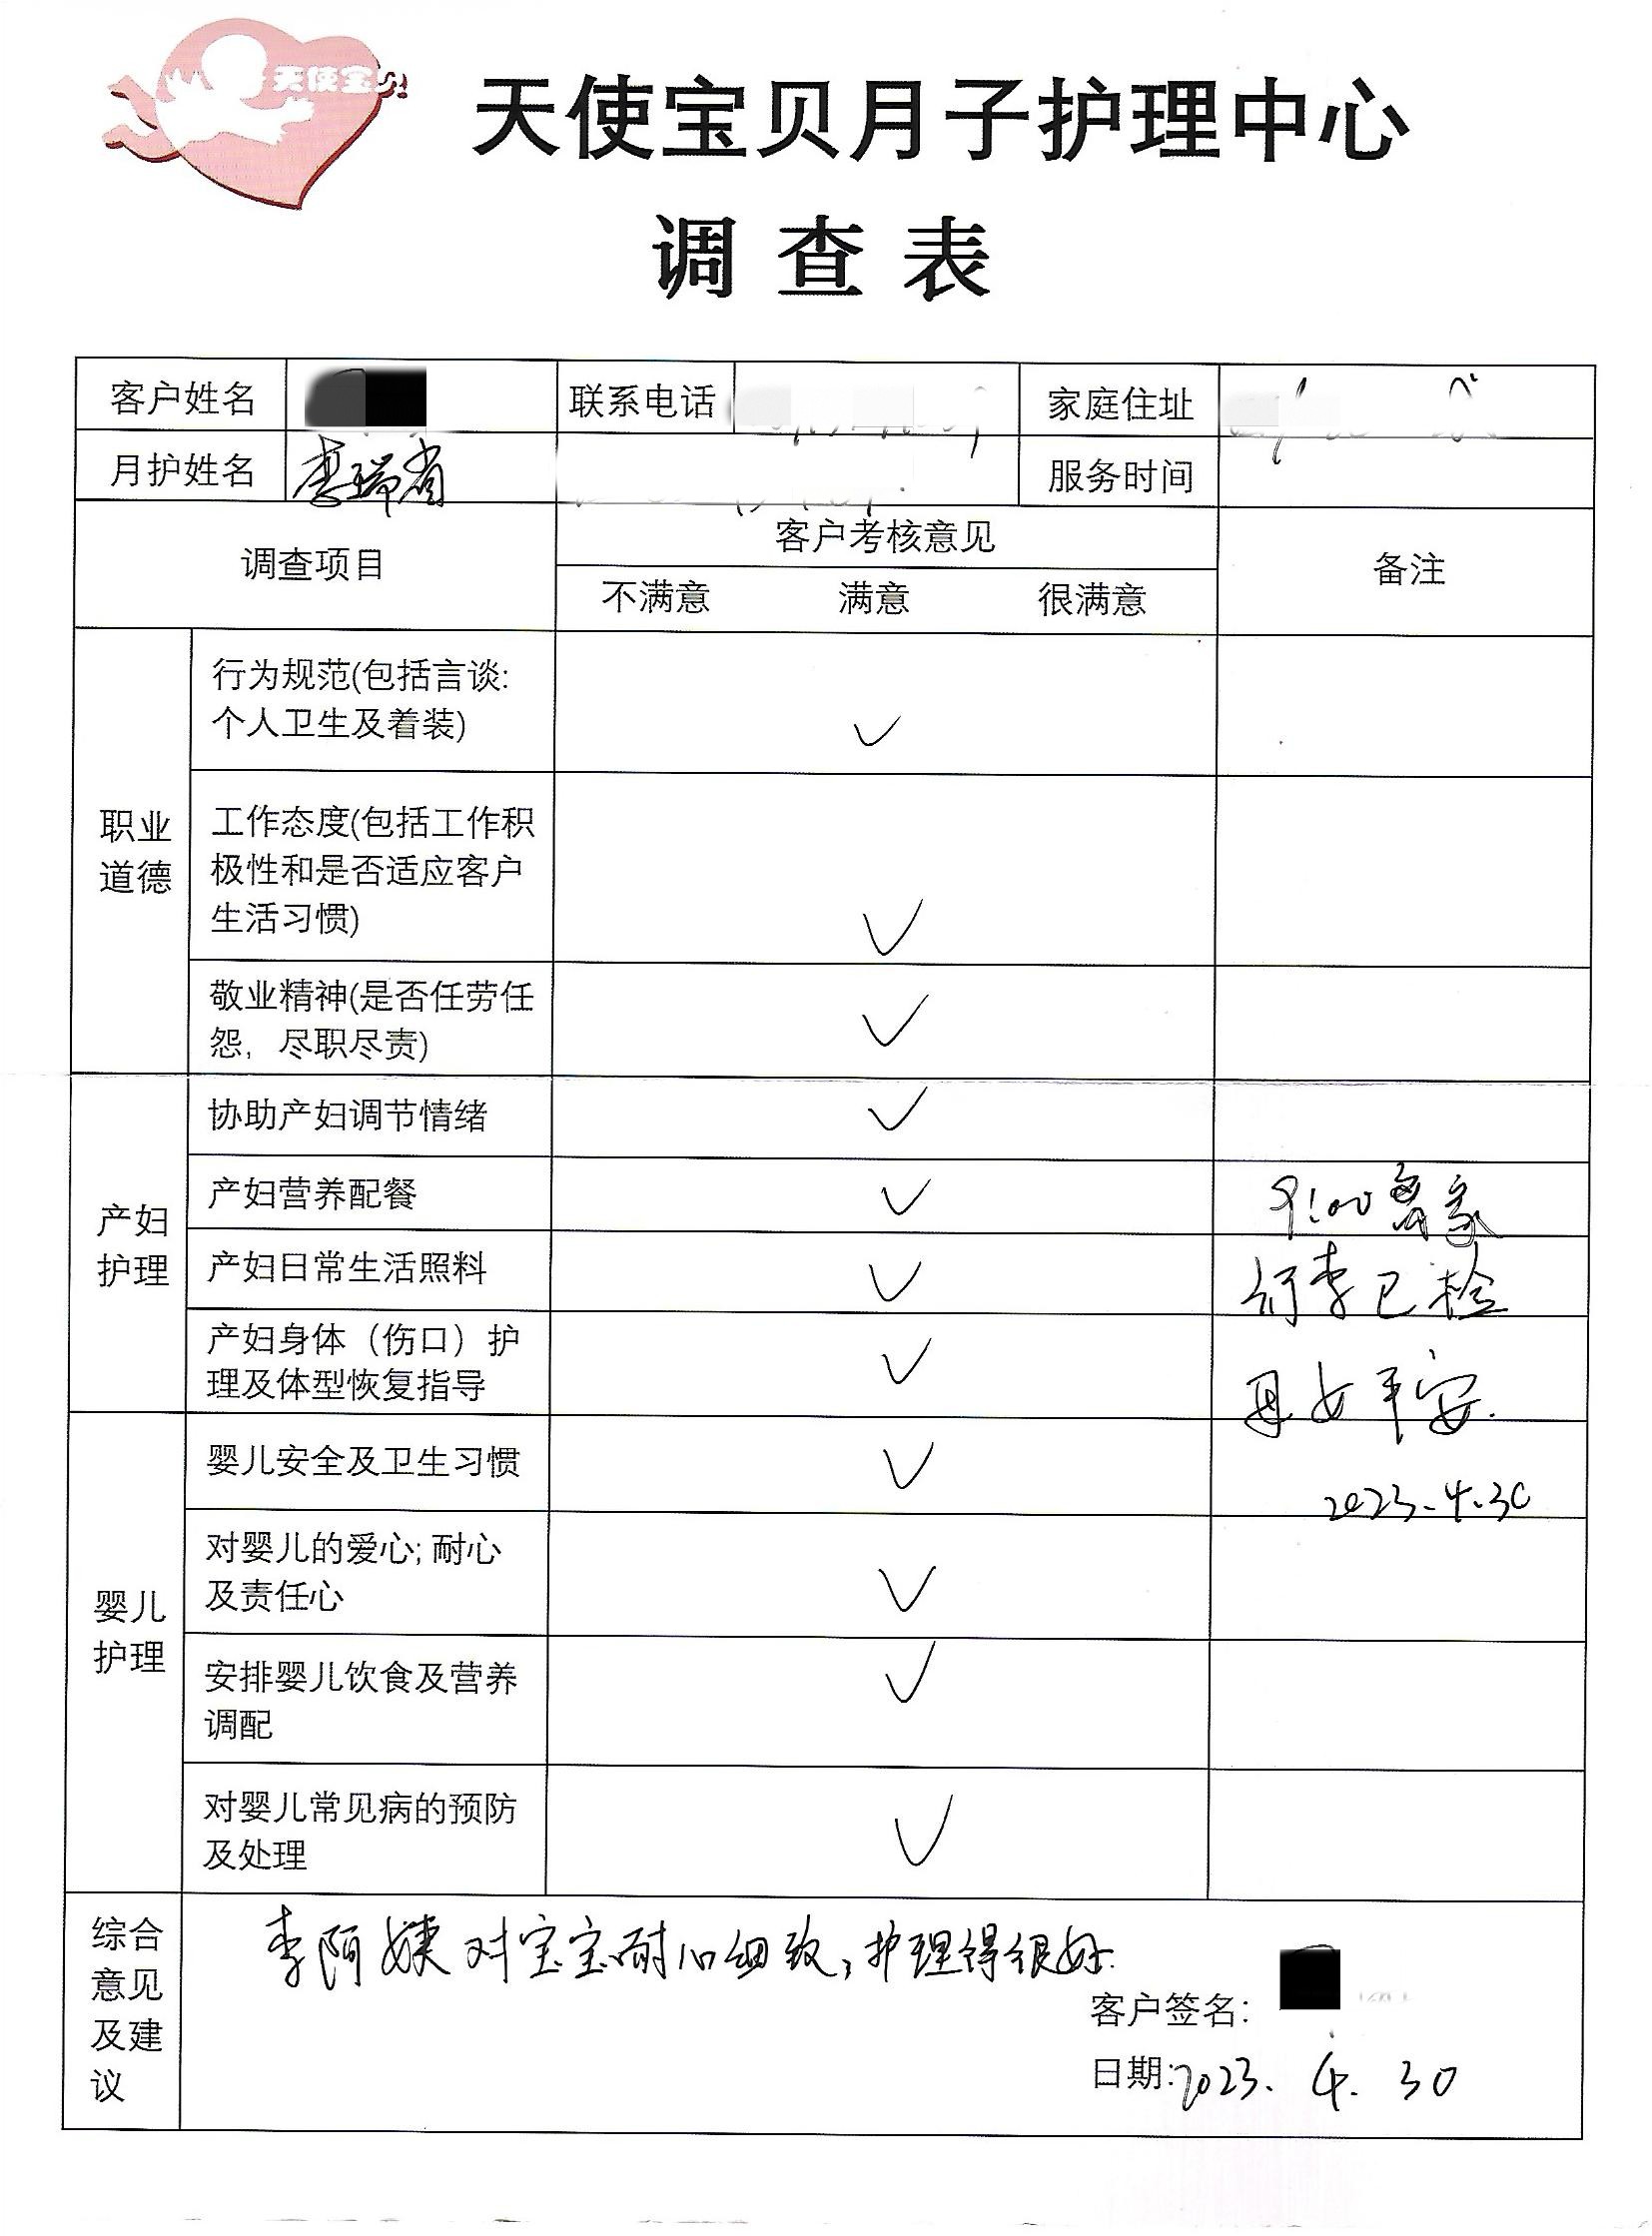 天使宝贝
天使宝贝月子护理中心
调查表
客户姓名 联系电话 家庭住址
月护姓名 李瑞省 服务时间
调查项目 客户考核意见 备注
不满意 满意 很满意
职业
道德
行为规范(包括言谈:
个人卫生及着装)
✓
工作态度(包括工作积
极性和是否适应客户
生活习惯)
✓
敬业精神(是否任劳任
怨，尽职尽责)
✓
产妇
护理
协助产妇调节情绪 ✓
产妇营养配餐 ✓ 9:00离家
产妇日常生活照料 ✓ 行李已检
产妇身体（伤口）护
理及体型恢复指导
✓ 母女平安.
婴儿
护理
婴儿安全及卫生习惯 ✓ 2023.4.30
对婴儿的爱心; 耐心
及责任心
✓
安排婴儿饮食及营养
调配
✓
对婴儿常见病的预防
及处理
✓
综合
意见
及建
议
李阿姨对宝宝耐心细致，护理得很好.
客户签名:
日期:2023.4.30